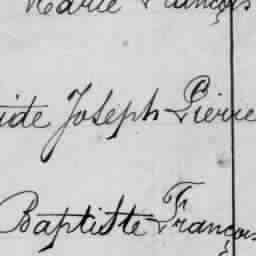 Marie François
ide Joseph Pierre
Baptiste François